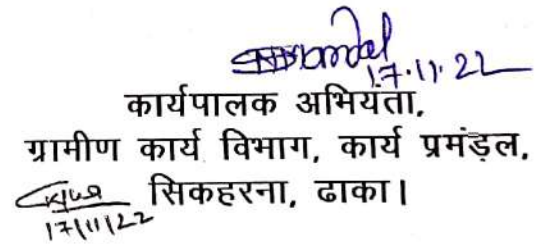 17.11.22
कार्यपालक अभियंता,
ग्रामीण कार्य विभाग, कार्य प्रमंड़ल,
सिकहरना, ढाका।
17/11/22